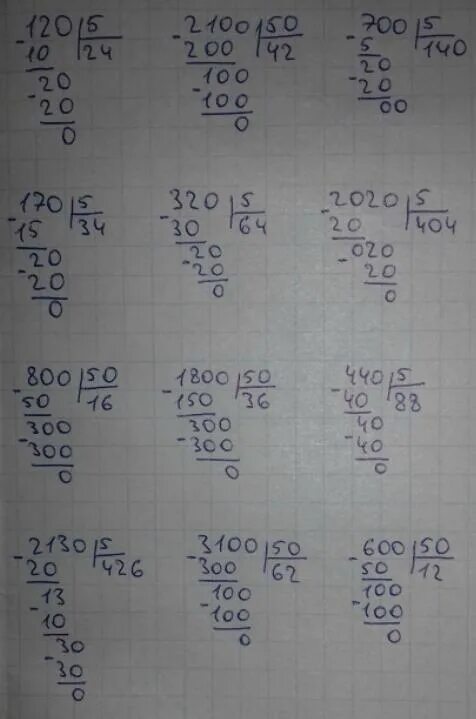 -120|5
10 24
20
-20
0
-2100|50
200 42
100
-100
0
-700|5
5 140
20
-20
00
-170|5
15 34
20
-20
0
-320|5
30 64
20
-20
0
-2020|5
20 404
020
-20
0
-800|50
50 16
300
-300
0
-1800|50
150 36
300
-300
0
-440|5
40 88
40
-40
0
-2130|5
20 426
13
-10
30
-30
0
-3100|50
300 62
100
-100
0
-600|50
50 12
100
-100
0